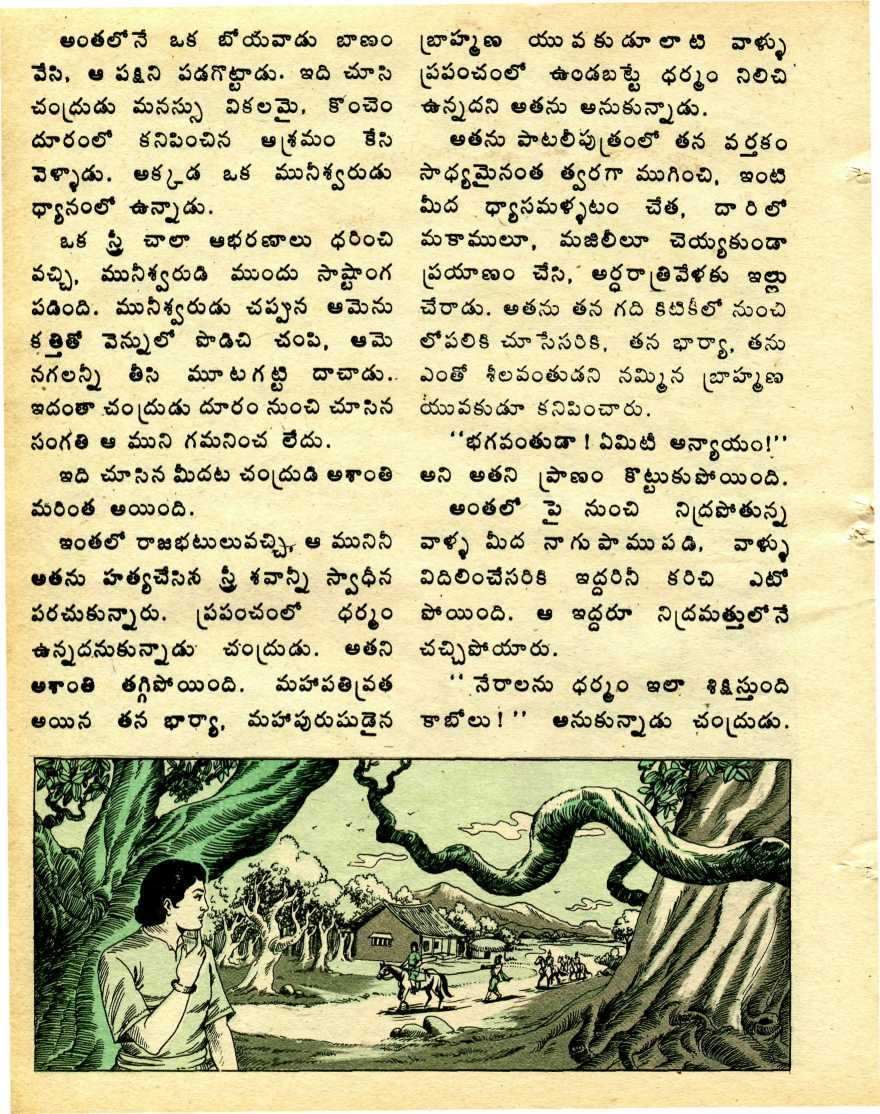 అంతలోనే ఒక బోయవాడు బాణం
వేసి, ఆ పక్షిని పడగొట్టాడు. ఇది చూసి
చంద్రుడు మనస్సు వికలమై, కొంచెం
దూరంలో కనిపించిన ఆశ్రమం కేసి
వెళ్ళాడు. అక్కడ ఒక మునీశ్వరుడు
ధ్యానంలో ఉన్నాడు.
ఒక స్త్రీ చాలా ఆభరణాలు ధరించి
వచ్చి, మునీశ్వరుడి ముందు సాష్టాంగ
పడింది. మునీశ్వరుడు చప్పున ఆమెను
కత్తితో వెన్నులో పొడిచి చంపి, ఆమె
నగలన్నీ తీసి మూటగట్టి దాచాడు.
ఇదంతా చంద్రుడు దూరం నుంచి చూసిన
సంగతి ఆ ముని గమనించ లేదు.
ఇది చూసిన మీదట చంద్రుడి అశాంతి
మరింత అయింది.
ఇంతలో రాజభటులువచ్చి, ఆ మునినీ
అతను హత్యచేసిన స్త్రీ శవాన్నీ స్వాధీన
పరచుకున్నారు. ప్రపంచంలో ధర్మం
ఉన్నదనుకున్నాడు చంద్రుడు. అతని
అశాంతి తగ్గిపోయింది. మహాపతివ్రత
అయిన తన భార్యా, మహాపురుషుడైన
బ్రాహ్మణ యువకుడూలాటి వాళ్ళు
ప్రపంచంలో ఉండబట్టే ధర్మం నిలిచి
ఉన్నదని అతను అనుకున్నాడు.
అతను పాటలీపుత్రంలో తన వర్తకం
సాధ్యమైనంత త్వరగా ముగించి, ఇంటి
మీద ధ్యాసమళ్ళటం చేత, దారిలో
మకాములూ, మజిలీలూ చెయ్యకుండా
ప్రయాణం చేసి, అర్ధరాత్రివేళకు ఇల్లు
చేరాడు. అతను తన గది కిటికీలో నుంచి
లోపలికి చూసేసరికి, తన భార్యా, తను
ఎంతో శీలవంతుడని నమ్మిన బ్రాహ్మణ
యువకుడూ కనిపించారు.
“భగవంతుడా! ఏమిటీ అన్యాయం!”
అని అతని ప్రాణం కొట్టుకుపోయింది.
అంతలో పై నుంచి నిద్రపోతున్న
వాళ్ళ మీద నాగుపాముపడి, వాళ్ళు
విదిలించేసరికి ఇద్దరినీ కరిచి ఎటో
పోయింది. ఆ ఇద్దరూ నిద్రమత్తులోనే
చచ్చిపోయారు.
“నేరాలను ధర్మం ఇలా శిక్షిస్తుంది
కాబోలు!” అనుకున్నాడు చంద్రుడు.